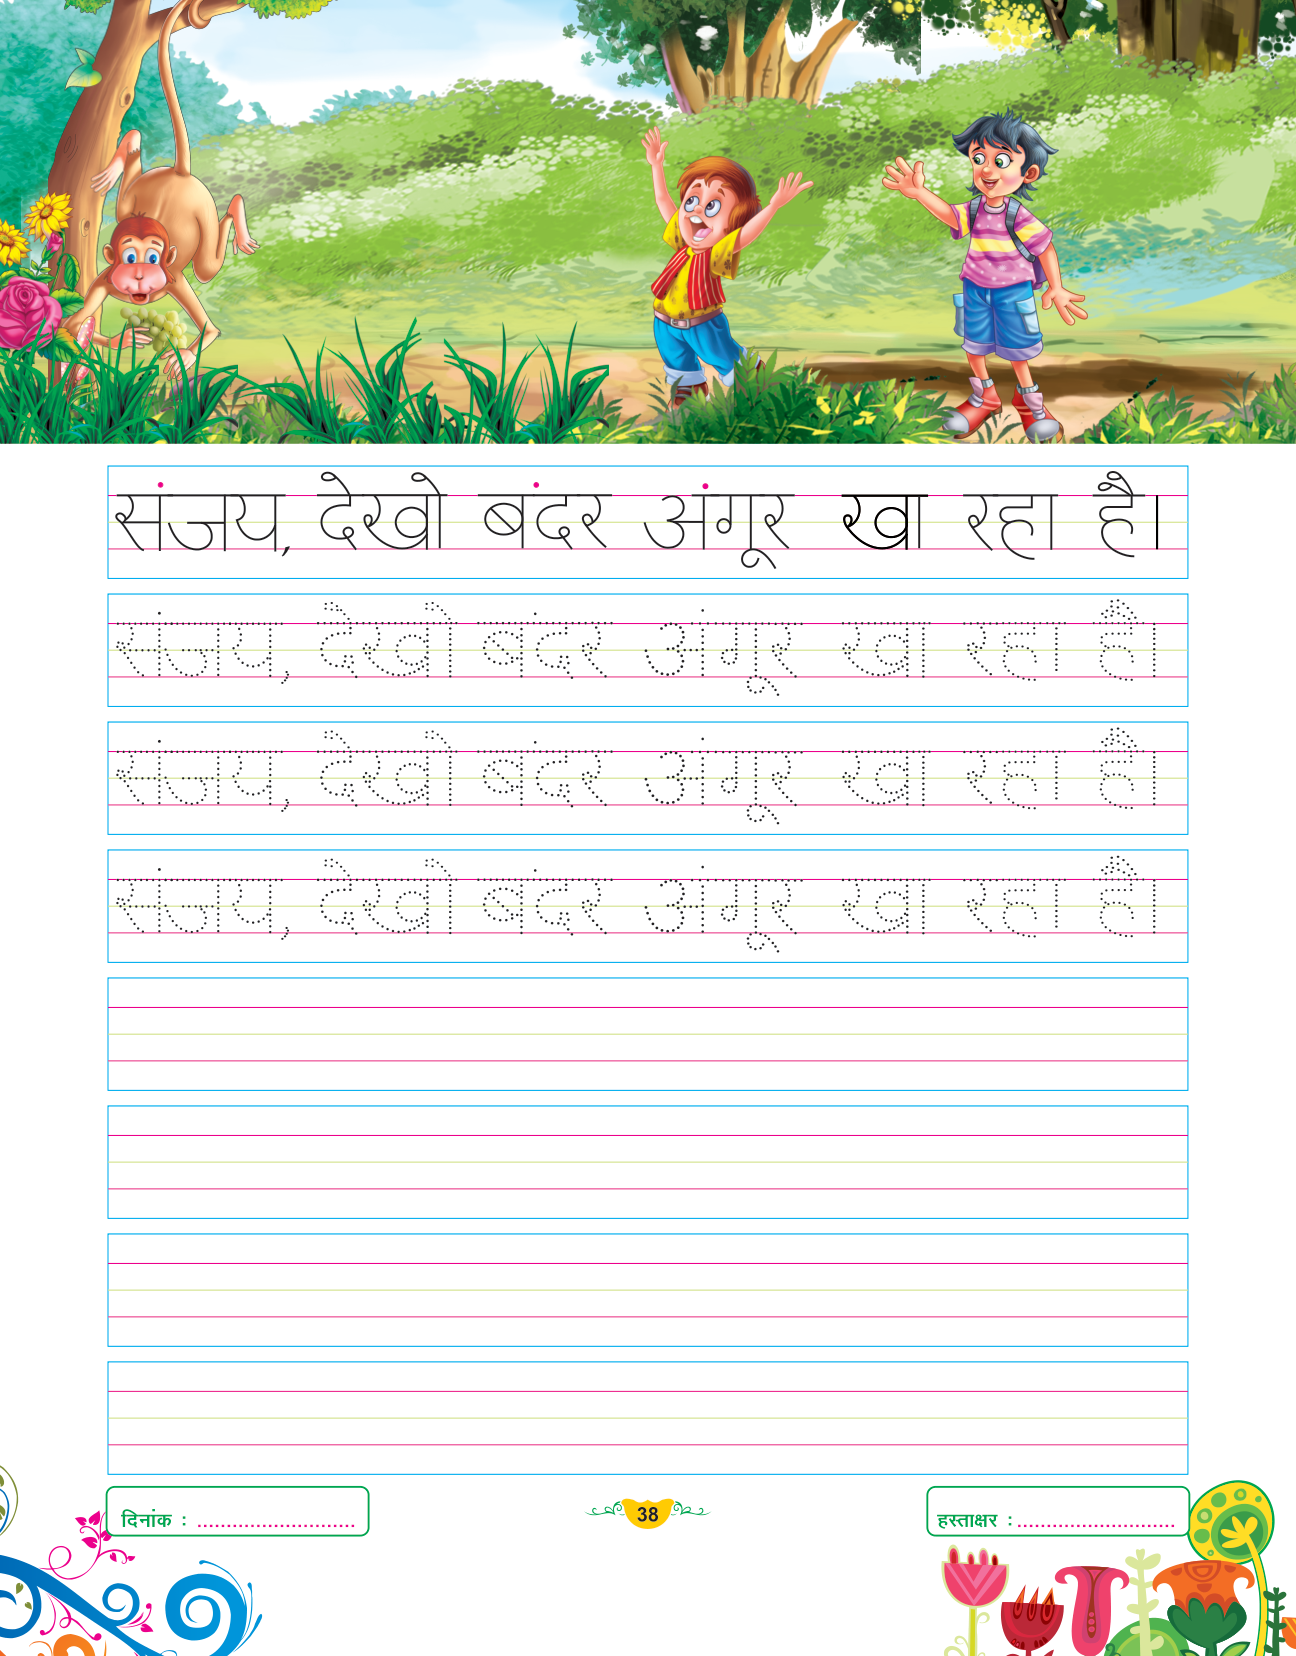 संजय, देखो बंदर अंगूर खा रहा है।
संजय, देखो बंदर अंगूर खा रहा है।
संजय, देखो बंदर अंगूर खा रहा है।
संजय, देखो बंदर अंगूर खा रहा है।
दिनांक : ........................... 38 हस्ताक्षर : ...........................